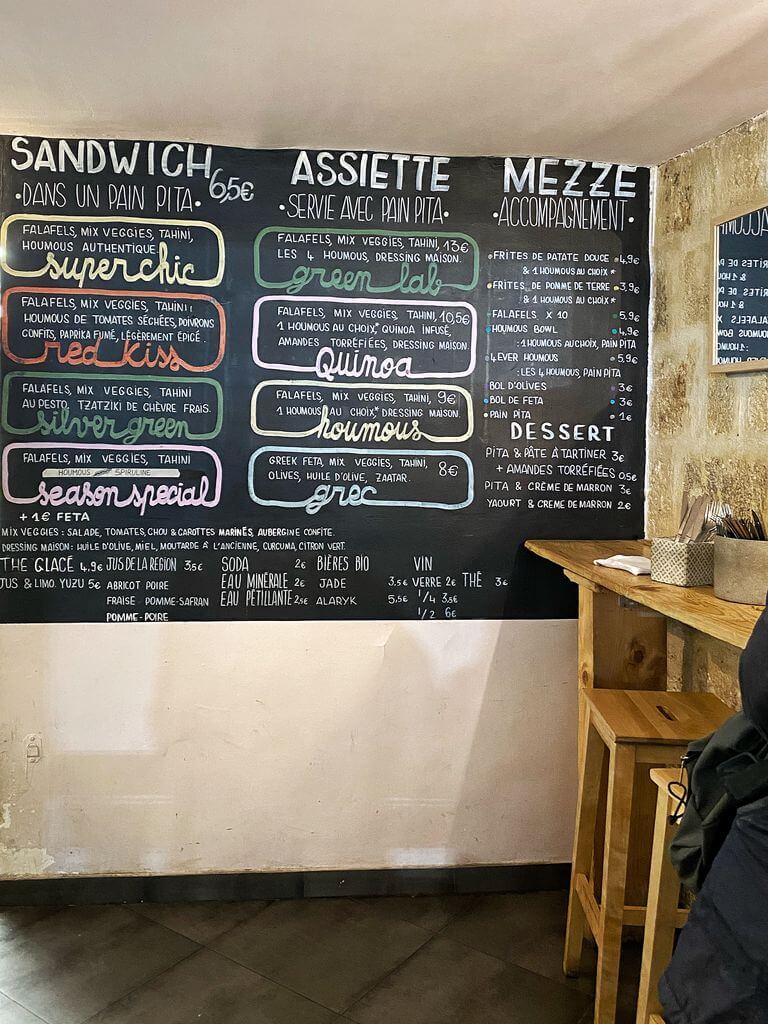 SANDWICH 6,5€
•DANS UN PAIN PITA•
FALAFELS, MIX VEGGIES, TAHINI,
HOUMOUS AUTHENTIQUE
superchic
FALAFELS, MIX VEGGIES, TAHINI,
HOUMOUS DE TOMATES SÉCHÉES, POIVRONS
CONFITS, PAPRIKA FUMÉ, LÉGÈREMENT ÉPICÉ.
red kiss
FALAFELS, MIX VEGGIES, TAHINI
AU PESTO, TZATZIKI DE CHÈVRE FRAIS.
silver green
FALAFELS, MIX VEGGIES, TAHINI
HOUMOUS SPIRULINE
season special
+ 1€ FETA
ASSIETTE
•SERVIE AVEC PAIN PITA•
FALAFELS, MIX VEGGIES, TAHINI, 13€
LES 4 HOUMOUS, DRESSING MAISON.
green lab
FALAFELS, MIX VEGGIES, TAHINI, 10,5€
1 HOUMOUS AU CHOIX,* QUINOA INFUSÉ,
AMANDES TORRÉFIÉES, DRESSING MAISON.
Quinoa
FALAFELS, MIX VEGGIES, TAHINI, 9€
1 HOUMOUS AU CHOIX,* DRESSING MAISON.
houmous
GREEK FETA, MIX VEGGIES, TAHINI, 8€
OLIVES, HUILE D'OLIVE, ZAATAR.
grec
MEZZE
•ACCOMPAGNEMENT•
•FRITES DE PATATE DOUCE •4,9€
& 1 HOUMOUS AU CHOIX *
•FRITES DE POMME DE TERRE •3,9€
& 1 HOUMOUS AU CHOIX *
•FALAFELS X 10 •5,9€
•HOUMOUS BOWL •4,9€
:1 HOUMOUS AU CHOIX, PAIN PITA
•4EVER HOUMOUS •5,9€
:LES 4 HOUMOUS, PAIN PITA
•BOL D'OLIVES •3€
•BOL DE FETA •3€
•PAIN PITA •1€
DESSERT
PITA & PÂTE À TARTINER 3€
+ AMANDES TORRÉFIÉES 0,5€
PITA & CRÈME DE MARRON 3€
YAOURT & CREME DE MARRON 2€
MIX VEGGIES : SALADE, TOMATES, CHOU & CAROTTES MARINÉS, AUBERGINE CONFITE.
DRESSING MAISON: HUILE D'OLIVE, MIEL, MOUTARDE À L'ANCIENNE, CURCUMA, CITRON VERT.
THE GLACÉ 4,9€
JUS & LIMO. YUZU 5€
JUS DE LA REGION 3,5€
ABRICOT POIRE
FRAISE POMME-SAFRAN
POMME-POIRE
SODA 2€
EAU MINÉRALE 2€
EAU PÉTILLANTE 2,5€
BIÈRES BIO
JADE 3,5€
ALARYK 5,5€
VIN
VERRE 2€
1/4 3,5€
1/2 6€
THÉ 3€